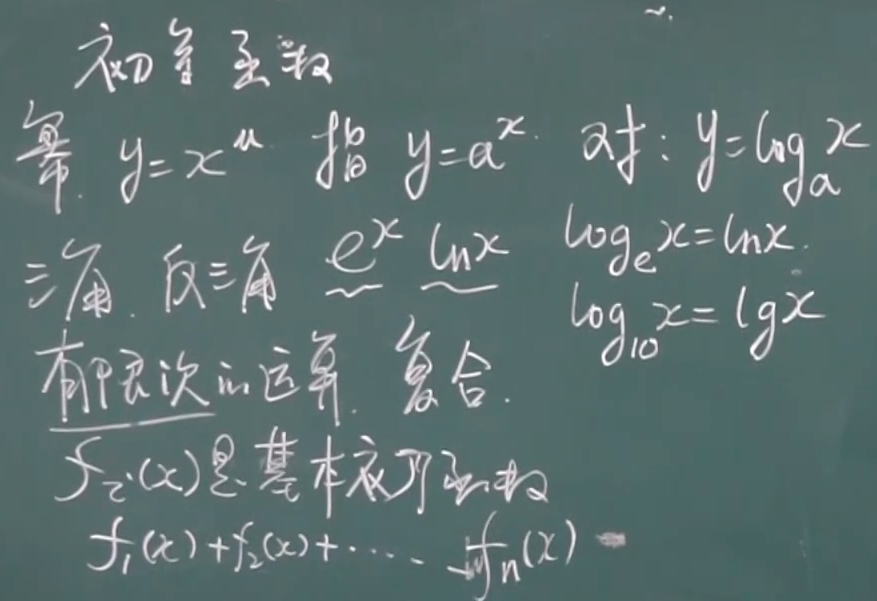 初等函数
幂. y=x^u 指 y=a^x. 对: y=log_a x
三角. 反三角 e^x lnx log_e x=lnx.
log_10 x=lgx
有限次的运算. 复合.
f_i(x)是基本初等函数
f_1(x)+f_2(x)+····· f_n(x)